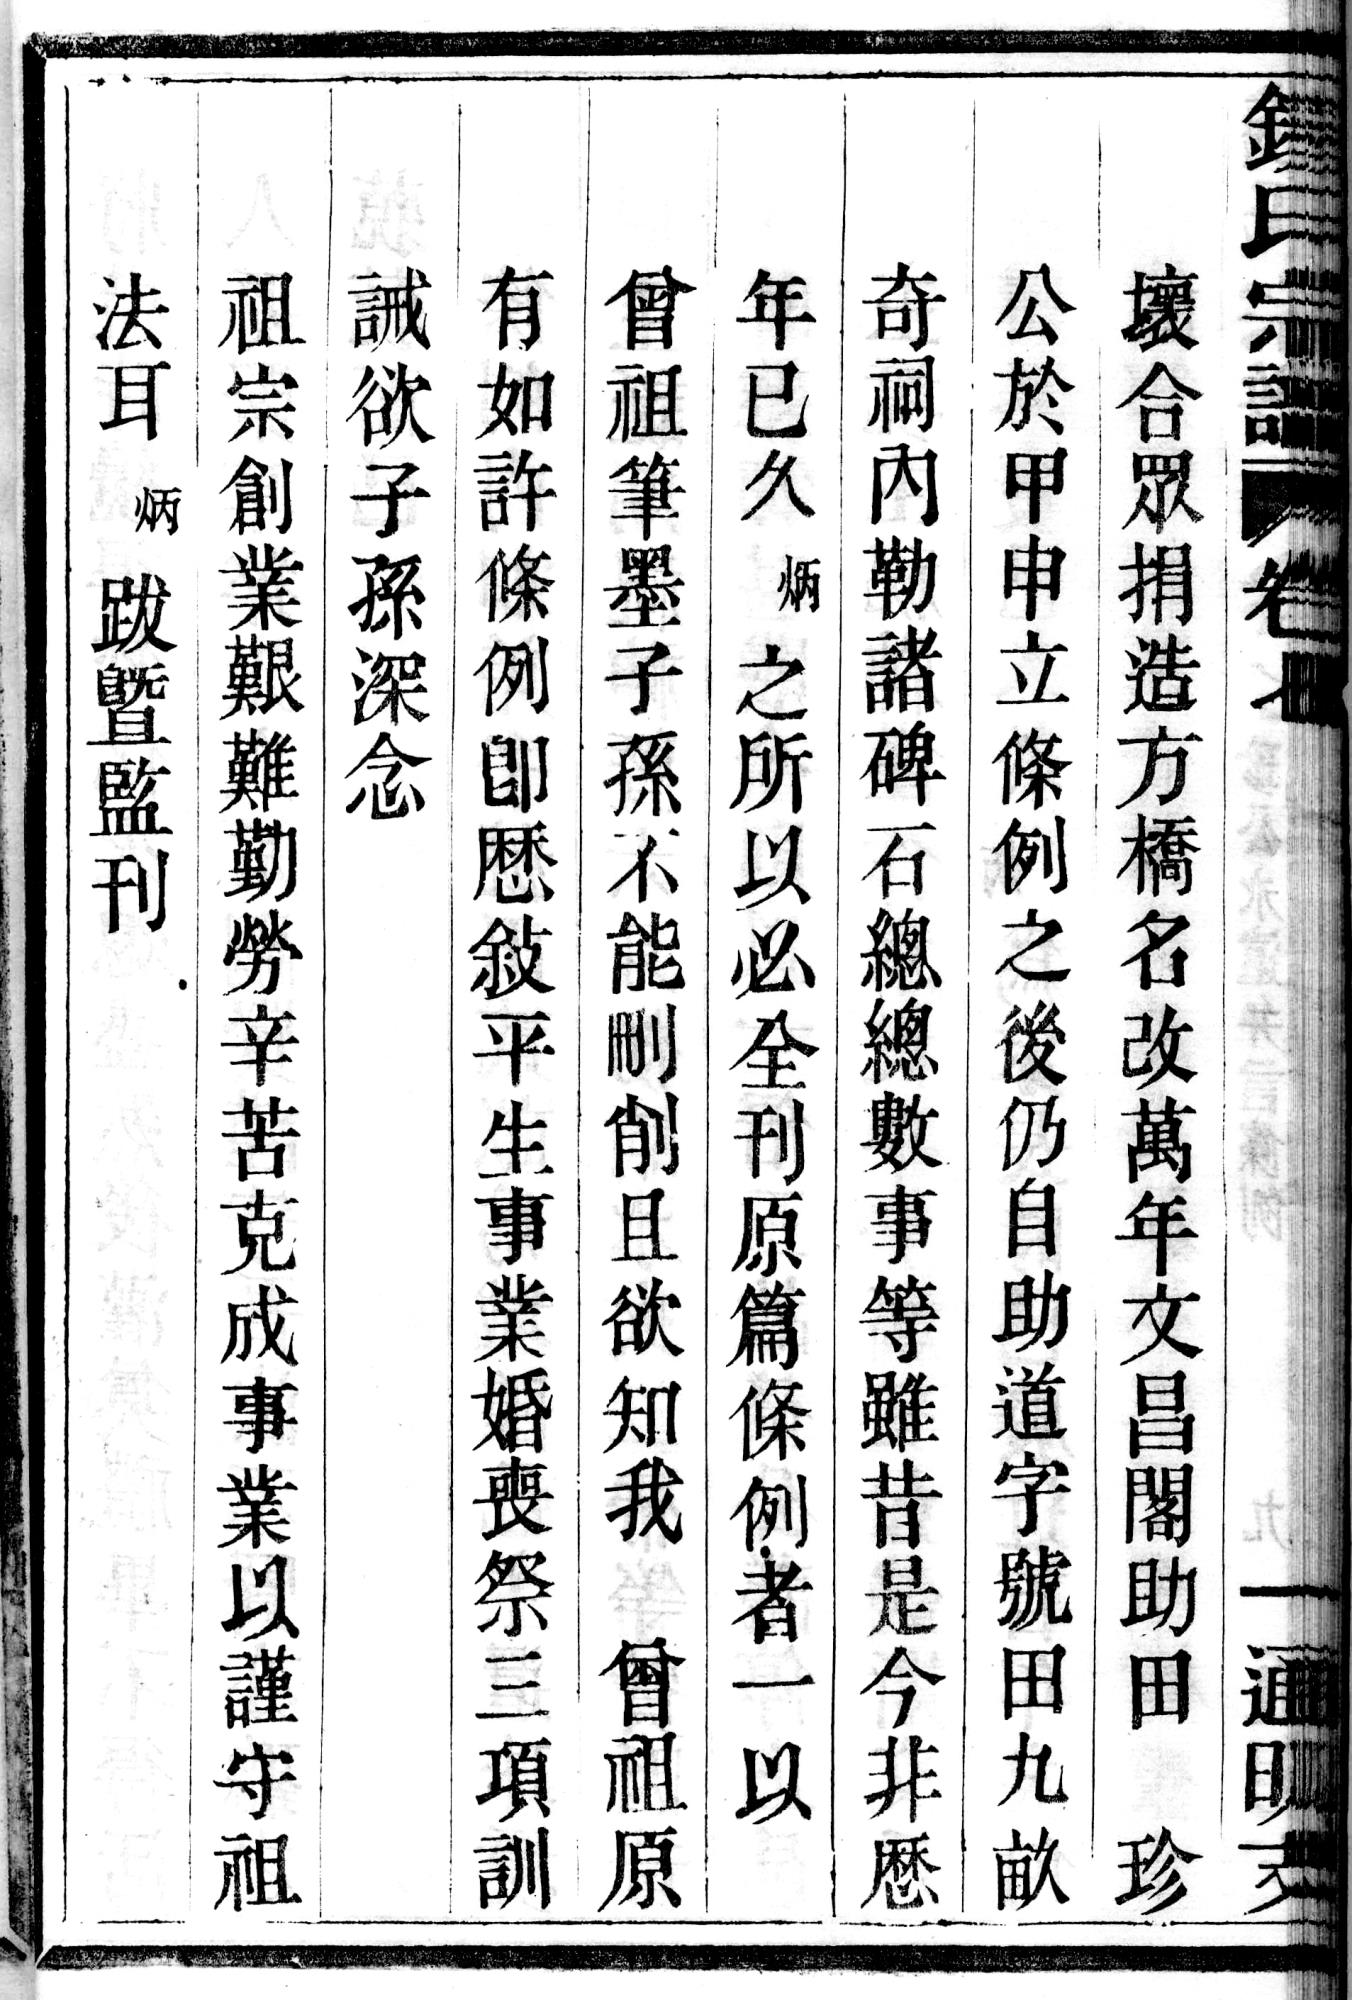 錢氏宗譜 卷七 通明支
壞合眾捐造方橋名改萬年文昌閣助田　珍
公於甲申立條例之後仍自助道字號田九畝
奇祠內勒諸碑石總總數事等雖昔是今非厯
年已久炳之所以必全刊原篇條例者一以
曾祖筆墨子孫不能刪削且欲知我　曾祖原
有如許條例卽厯敍平生事業婚喪祭三項訓
誡欲子孫深念
祖宗創業艱難勤勞辛苦克成事業以謹守祖
法耳炳跋暨監刊